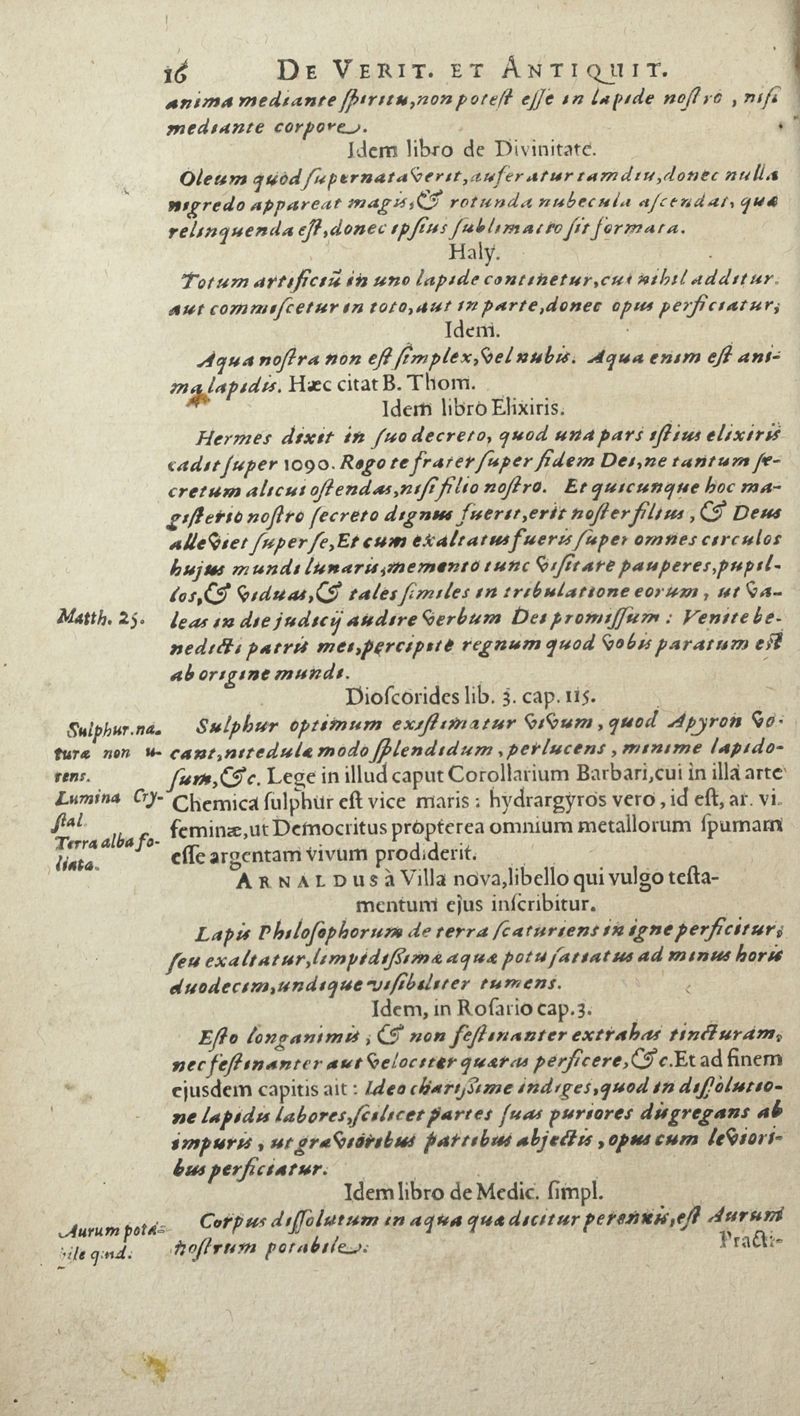 16 DE VERIT. ET ANTIQUIT.
anima mediante ſpiritu, non poteſt eſſe in lapide noſtro , niſi
mediante corpore.
Idem libro de Divinitate.
Oleum quod ſupernataverit, auferatur tamdiu, donec nulla
nigredo appareat magis, & rotunda nubecula aſcendat, quæ
relinquenda eſt, donec ipſius ſublimatio ſit formata.
Haly.
Totum artificiū in uno lapide continetur, cui nihil additur.
aut commiſcetur in toto, aut in parte, donec opus perficiatur;
Idem.
Aqua noſtra non eſt ſimplex, vel nubis. Aqua enim eſt ani-
ma lapidis. Hæc citat B. Thom.
Idem libro Elixiris.
Hermes dixit in ſuo decreto, quod una pars iſtius elixiris
cadit ſuper 1090. Rogo te frater ſuper fidem Dei, ne tantum ſe-
cretum alicui oſtendas, niſi filio noſtro. Et quicunque hoc ma-
giſterio noſtro ſecreto dignus fuerit, erit noſter filius , & Deus
alleviet ſuper ſe, Et cum exaltatus fueris ſuper omnes circulos
hujus mundi lunaris, memento tunc viſitare pauperes, pupil-
los, & viduas, & tales ſimiles in tribulatione eorum , ut va-
Matth. 25. leas in die judicij audire verbum Dei promiſſum : Venite be-
nedicti patris mei, percipite regnum quod vobis paratum eſt
ab origine mundi.
Dioſcorides lib. 3. cap. 115.
Sulphur. na- Sulphur optimum exiſtimatur vivum , quod Apyron vo-
turæ non u- cant, nitedulæ modo ſplendidum , perlucens , minime lapido-
rens. ſum, &c. Lege in illud caput Corollarium Barbari, cui in illa arte
Lumina Cry- Chemica ſulphur eſt vice maris : hydrargyros vero, id eſt, ar. vi.
ſtal feminæ, ut Democritus propterea omnium metallorum ſpumam
Terra alba fo- eſſe argentam vivum prodiderit.
liata.
ARNALDUS à Villa nova, libello qui vulgo teſta-
mentum ejus inſcribitur.
Lapis Philoſophorum de terra ſcaturiens in igne perficitur;
ſeu exaltatur, limpidiſſimæ aquæ potu ſatiatus ad minus horis
duodecim, undique viſibiliter tumens.
Idem, in Roſario cap. 3.
Eſto longanimis ; & non feſtinanter extrahas tincturam,
nec feſtinanter aut velociter quæras perficere, &c. Et ad finem
ejusdem capitis ait : Ideo chariſſime indiges, quod in diſſolutio-
ne lapidis labores, ſcilicet partes ſuas puriores disgregans ab
impuris , ut gravioribus partibus abjectis , opus cum leviori-
bus perficiatur.
Idem libro de Medic. ſimpl.
Aurum potâ- Corpus diſſolutum in aqua quæ dicitur perennis, eſt Aurum
bile qind. noſtrum potabile.
Practi-